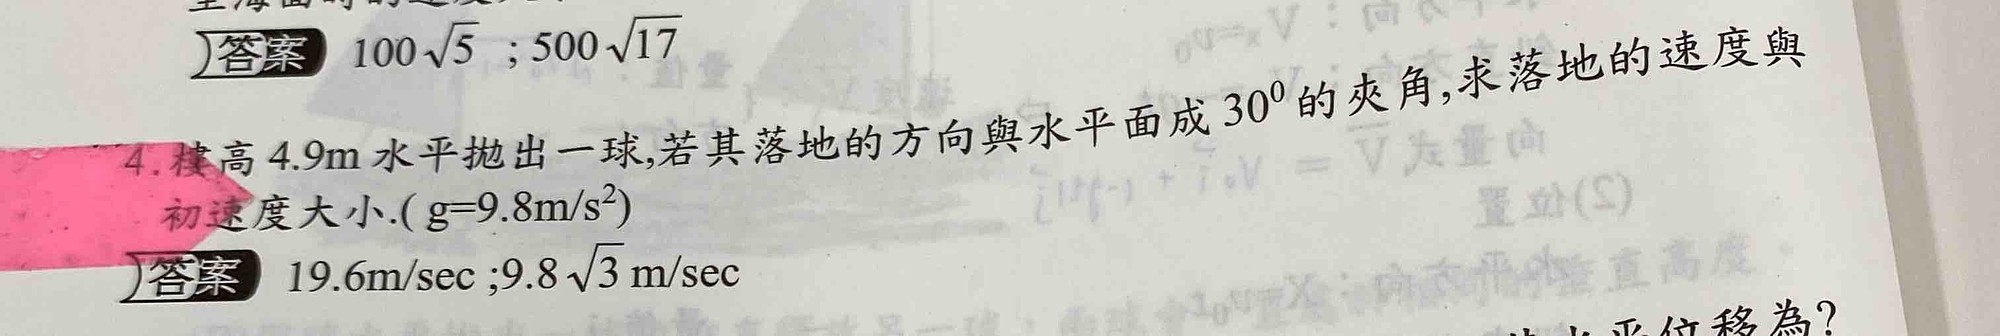 答案 100√5 ; 500√17
4. 樓高 4.9m 水平拋出一球,若其落地的方向與水平面成 30⁰ 的夾角,求落地的速度與
初速度大小.( g=9.8m/s²)
答案 19.6m/sec ;9.8√3 m/sec
水平位移為?